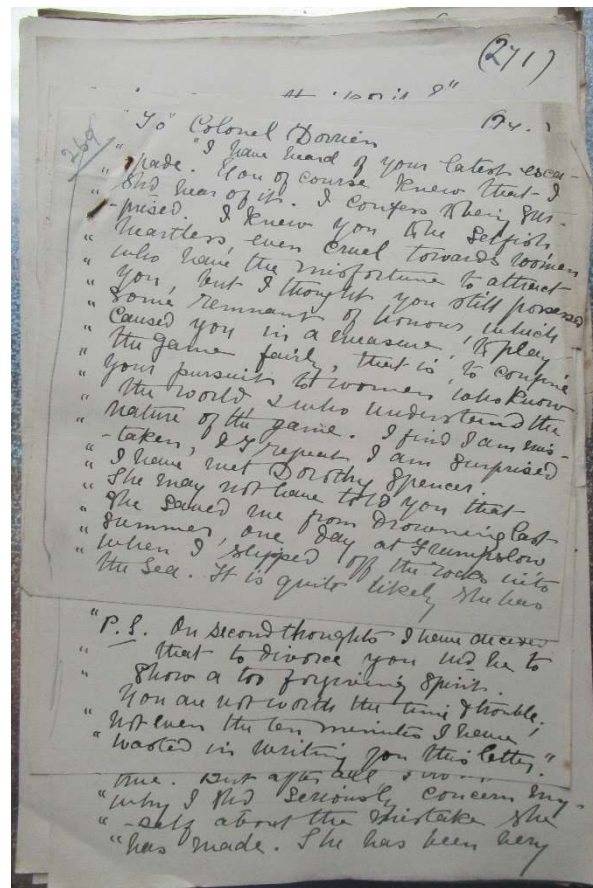 (271)
"To" Colonel Dorrien
269
" "I have heard of your latest esca-
" -pade. You of course knew that I
" shd hear of it. I confess to being sur-
" -prised. I knew you to be selfish,
" heartless, even cruel towards women
" who have the misfortune to attract
" you, but I thought you still possessed
" some remnant of honour, which
" caused you in a measure, to play
" the game fairly, that is, to confine
" your pursuit to women who know
" the world & who understand the
" nature of the game. I find I am mis-
" -taken, & I repeat I am surprised
" I have met Dorothy Spencer.
" She may not have told you that
" she saved me from drowning last
" summer, one day at Frumpslow
" when I slipped off the rocks into
the sea. It is quite likely she has
"P.S. On second thoughts I have decided
" that to divorce you wd be to
" show a too forgiving spirit.
" You are not worth the time & trouble,
" not even the ten minutes I have
" wasted in writing you this letter."
But after all
"why I shd seriously concern my-
" -self about the mistake she
"has made. She has been very